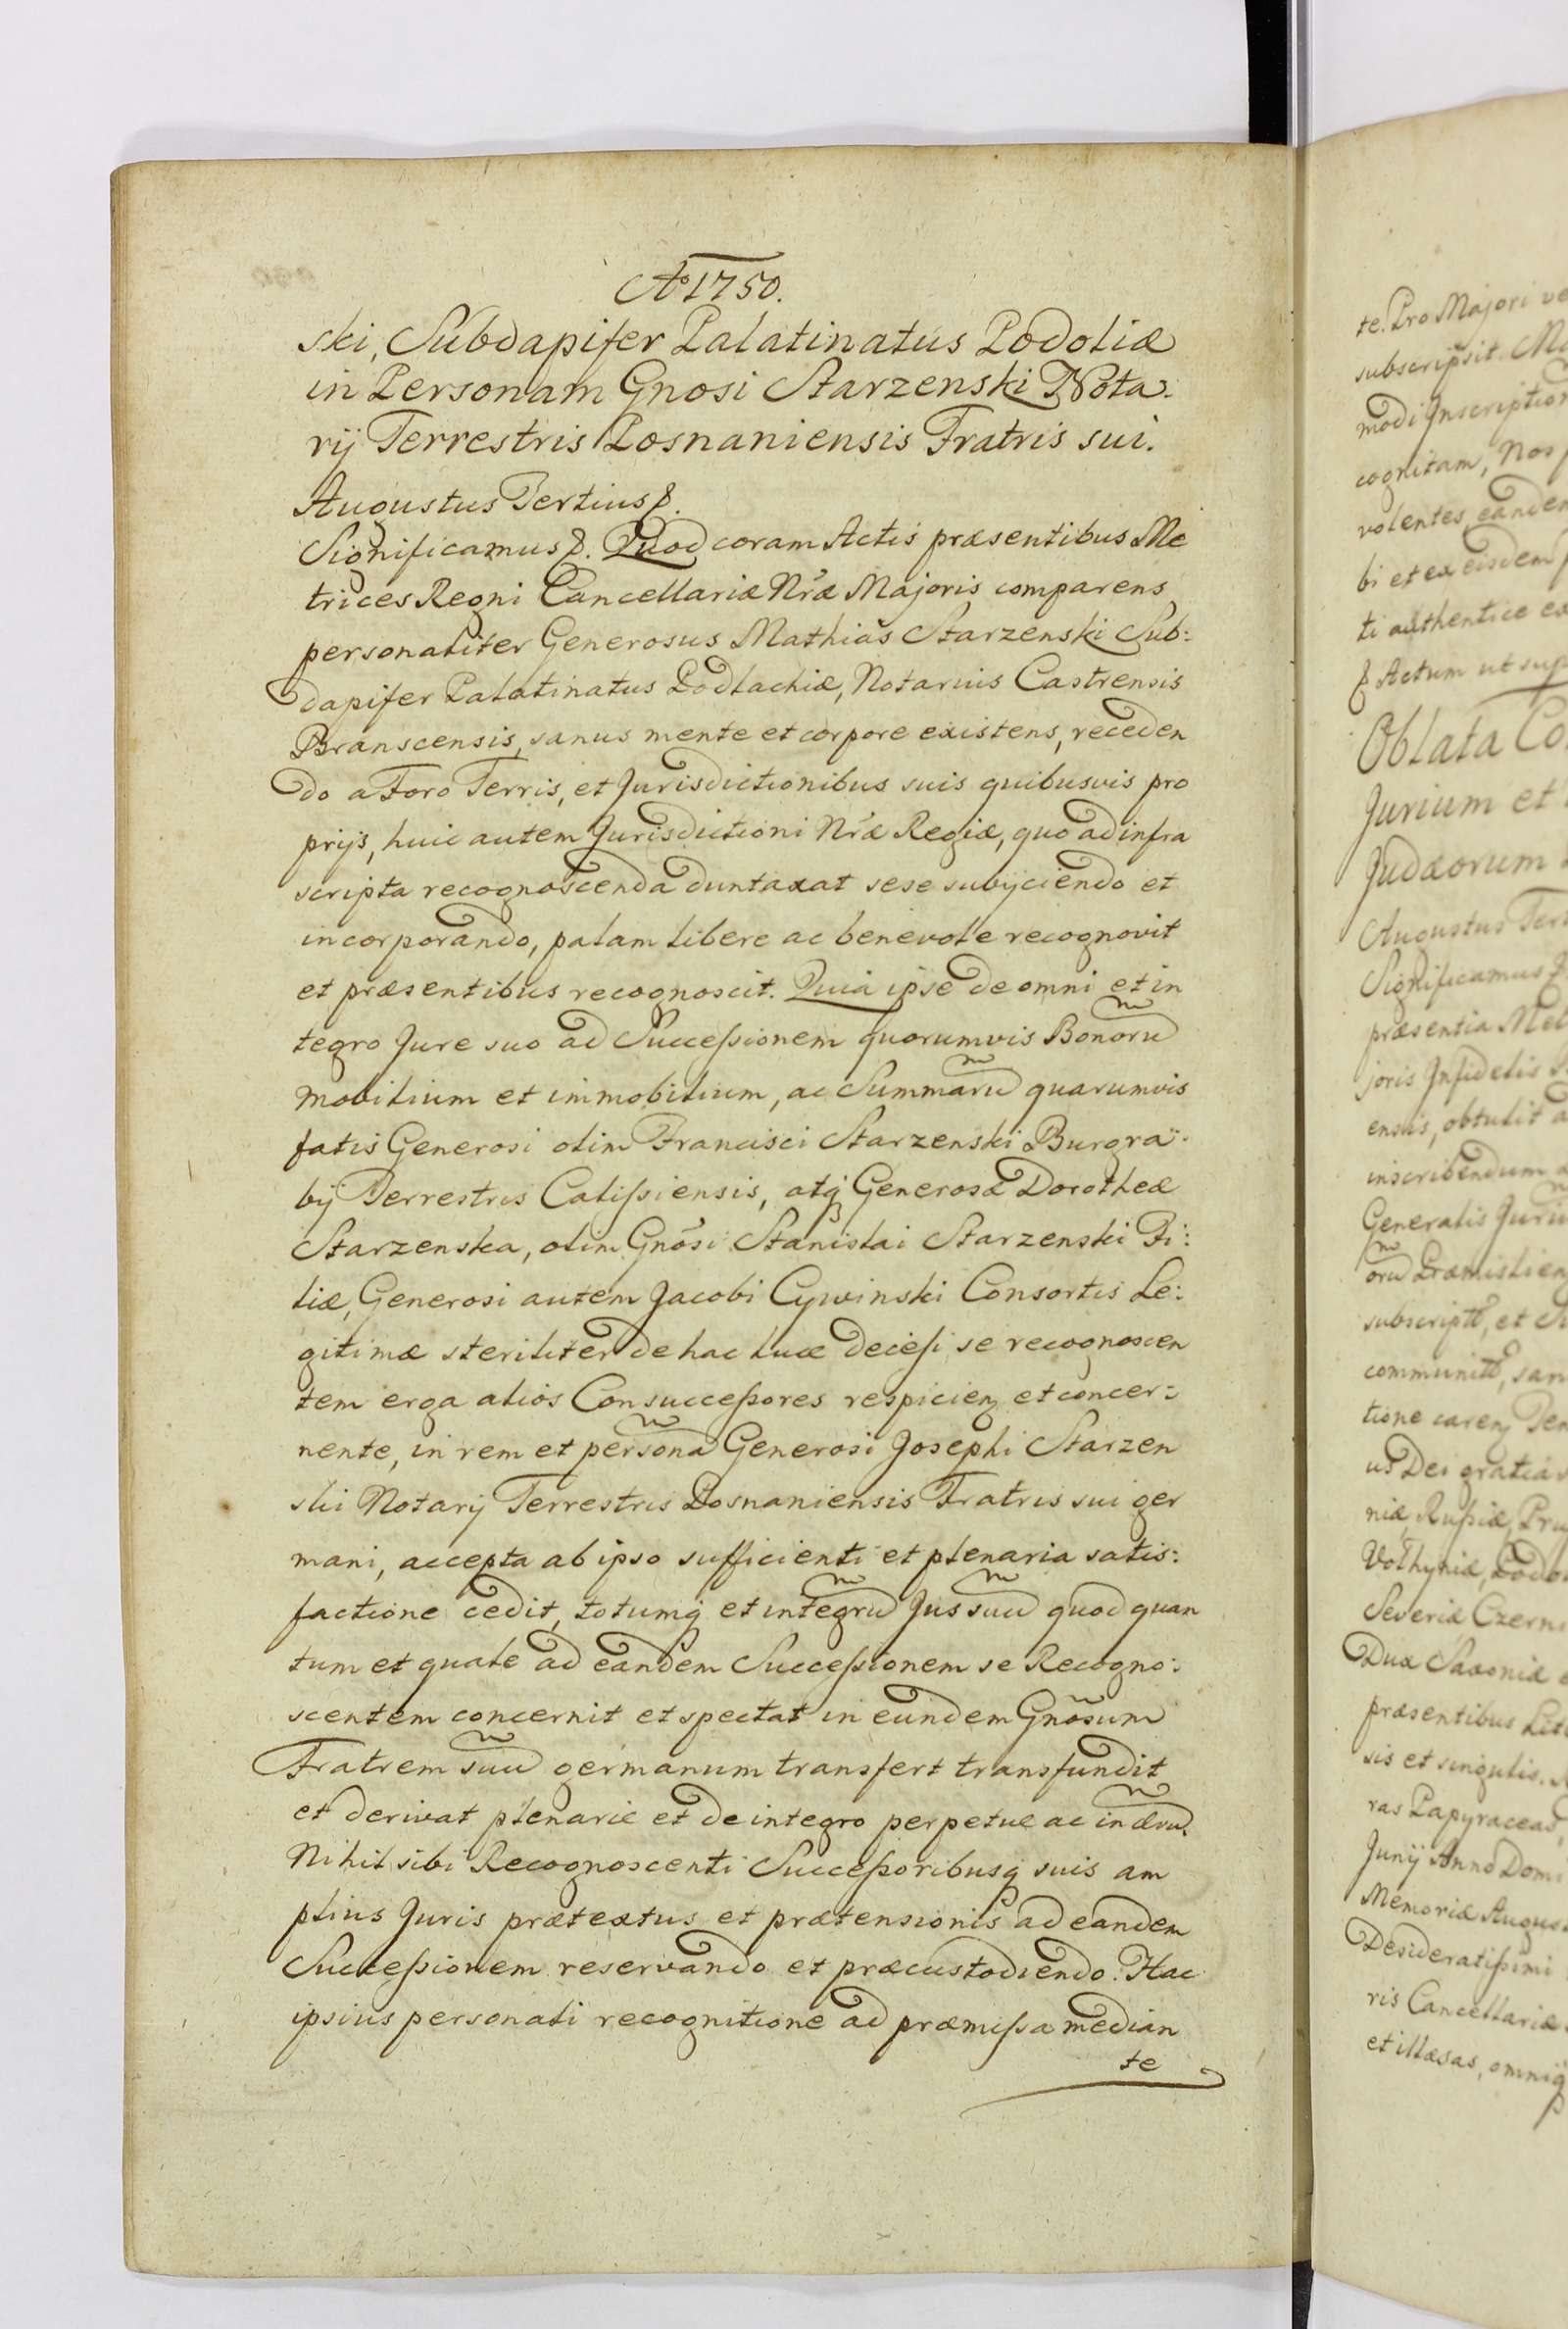 Aō 1750.
ski, Subdapifer Palatinatus Podoliæ
in Personam Gnosi Starzenski Nota:
rij Terrestris Posnaniensis Fratris sui.
Augustus Tertius &.
Significamus &. Quod coram Actis præsentibus Me
trices Regni Cancellariæ Nræ Majoris comparens
personaliter Generosus Mathias Starzenski Sub:
dapifer Palatinatus Podlachiæ, Notarius Castrensis
Branscensis, sanus mente et corpore existens, receden
do a Foro Terris, et Jurisdictionibus suis quibusvis pro
prijs, huic autem Jurisdictioni Nræ Regiæ, quo ad infra
scripta recognoscenda duntaxat sese subijciendo et
incorporando, palam libere ac benevole recognovit
et præsentibus recognoscit. Quia ipse de omni et in
tegro Jure suo ad Successionem quorumvis Bonorū
mobilium et immobilium, ac Summarū quarumvis
fatis Generosi olim Francisci Starzenski Burgra:
bij Terrestris Calissiensis, atq Generosæ Dorotheæ
Starzenska, olim Gnōsi Stanislai Starzenski Fi:
liæ, Generosi autem Jacobi Cywinski Consortis Le:
gitimæ steriliter de hac luce decessi se recognoscen
tem erga alios Consuccessores respicien et concer:
nente, in rem et personā Generosi Josephi Starzen
ski Notarij Terrestris Posnaniensis Fratris sui ger
mani, accepta ab ipso sufficienti et plenaria satis:
factione cedit, totumq et integrū Jus suū quod quan
tum et quale ad eandem Successionem se Recogno:
scentem concernit et spectat in eundem Gnōsum
Fratrem suū germanum transfert transfundit
et derivat plenarie et de integro perpetue ac in ævū.
Nihil sibi Recognoscenti Successoribusq suis am
plius Juris prætextus et prætensionis ad eandem
Successionem reservando et præcustodiendo. Hac
ipsius personali recognitione ad præmissa median
te
te. Pro Majori
subscripsit.
modi Inscription
cognitam, Nos
volentes, eandem
bi et ex eisdem
ti authentice
& Actum ut sup
Oblata
Jurium et
Judæorum
Augustus
Significamus
præsentia
joris Infidelis
ensis, obtulit
inscribendum
Generalis
orū Præmislien
subscript, et
communit, san
tione caren
us Dei gratia
niæ, Russiæ,
Volhyniæ,
Severiæ
Dux Saxoniæ
præsentibus
sis et singulis.
ras Papyraceas
Junij Anno
Memoriæ
Desideratissimi
ris Cancellariæ
et illæsas, omniq